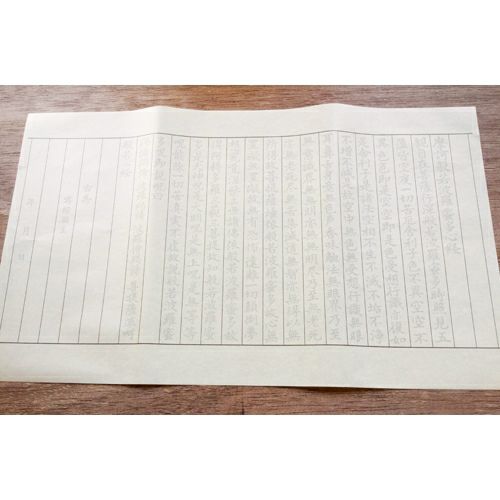 摩訶般若波羅蜜多心経
観自在菩薩行深般若波羅蜜多時照見五
蘊皆空度一切苦厄舎利子色不異空空不
異色色即是空空即是色受想行識亦復如
是舎利子是諸法空相不生不滅不垢不浄
不増不減是故空中無色無受想行識無眼
耳鼻舌身意無色声香味触法無眼界乃至
無意識界無無明亦無無明尽乃至無老死
亦無老死尽無苦集滅道無智亦無得以無
所得故菩提薩埵依般若波羅蜜多故心無
罣礙無罣礙故無有恐怖遠離一切顛倒夢
想究竟涅槃三世諸仏依般若波羅蜜多故
得阿耨多羅三藐三菩提故知般若波羅蜜
多是大神呪是大明呪是無上呪是無等等
呪能除一切苦真実不虚故説般若波羅蜜
多呪即説呪曰
羯諦羯諦波羅羯諦波羅僧羯諦菩提薩婆訶
般若心経
右為
年 月 日